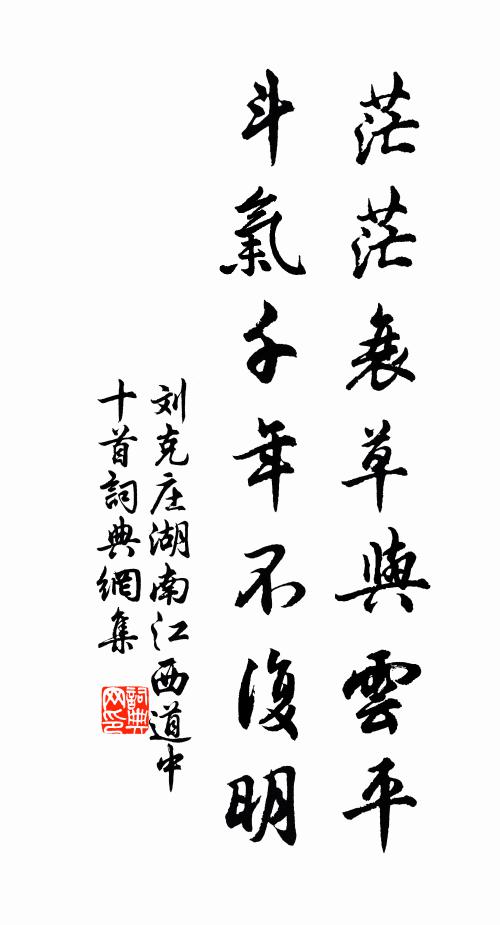 茫茫衰草與雲平
斗氣千年不復明
刘克庄湖南江西道中
十首詞典網集
詞典
网印